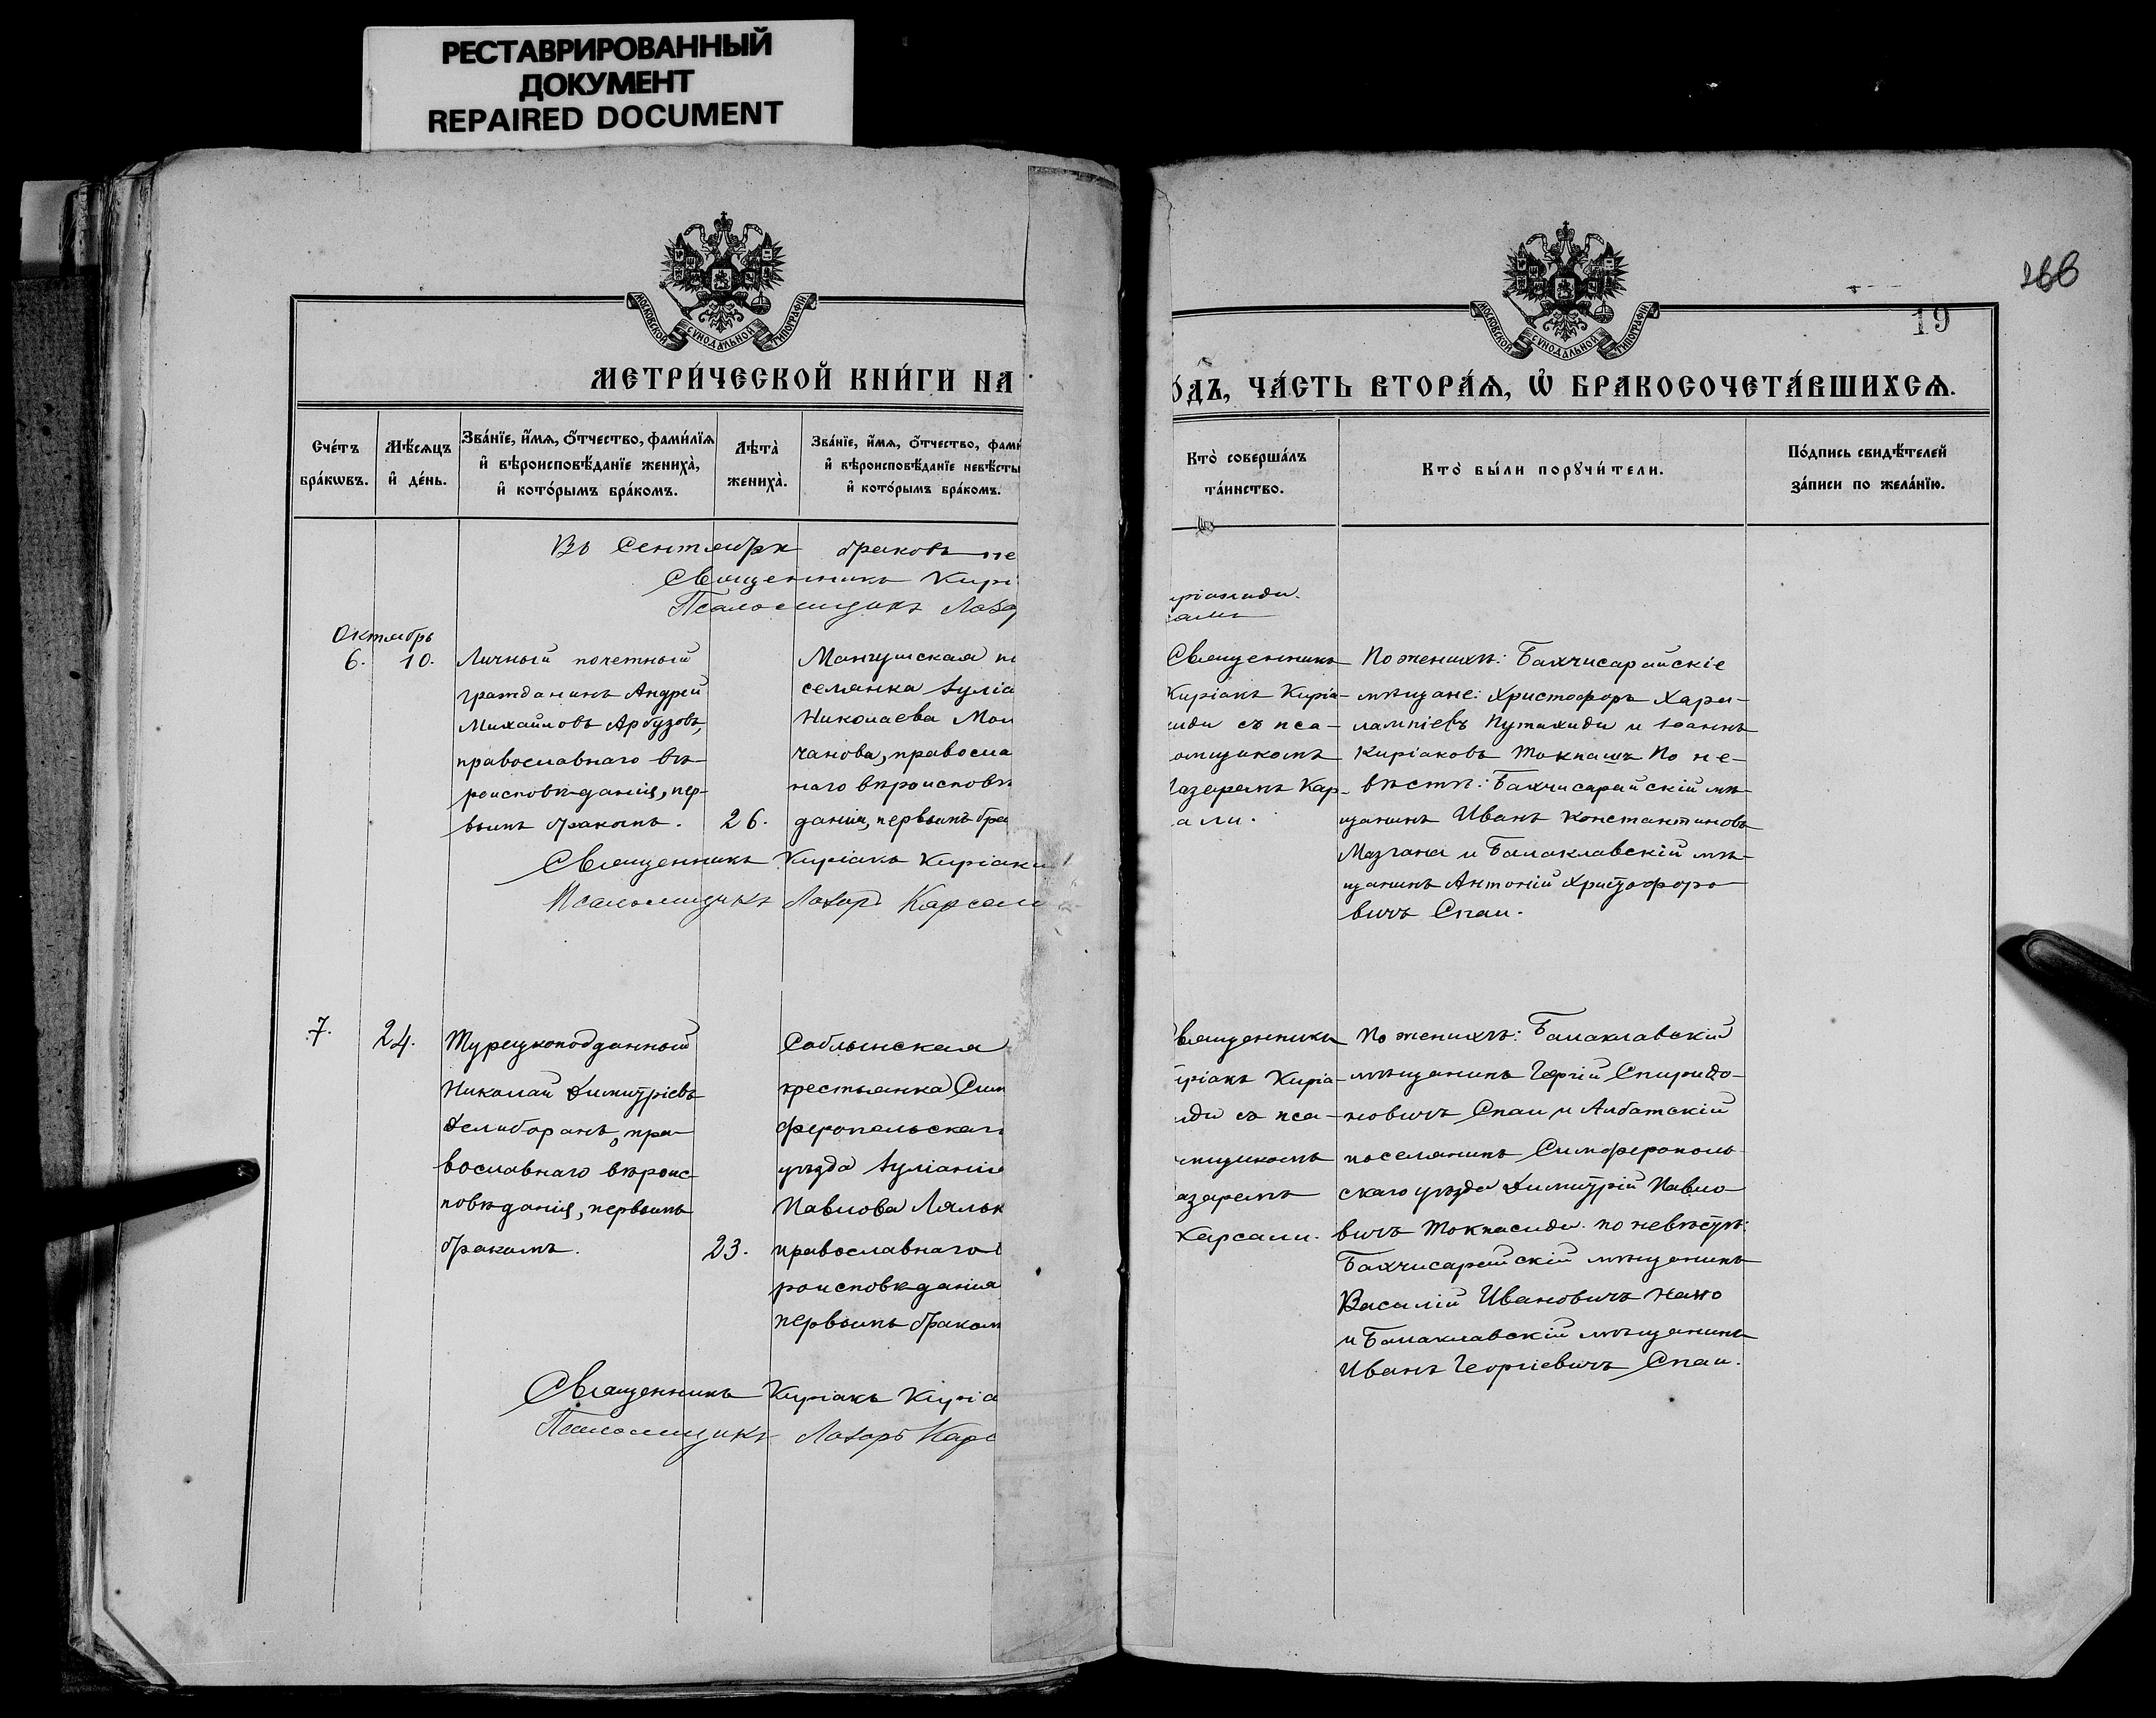 РЕСТАВРИРОВАННЫЙ
ДОКУМЕНТ
REPAIRED DOCUMENT
МОСКОВСКОЙ СѴНОДАЛЬНОЙ ТИПОГРАФІИ
МЕТРИ́ЧЕСКОЙ КНИ́ГИ НА
Сче́тъ
бра́кѡвъ.
Мѣ́сѧцъ
и҆ де́нь.
Зва́нїе, и҆́мѧ, ѻ҆́тчество, фами́лїѧ
и҆ вѣроисповѣ́данїе жениха̀,
и҆ кото́рымъ бра́комъ.
Лѣта̀
жениха̀.
Зва́нїе, и҆́мѧ, ѻ҆́тчество, фами
и҆ вѣроисповѣ́данїе невѣ́сты
и҆ кото́рымъ бра́комъ.
Въ Сентябрѣ браковъ не
Священникъ Кирі
Псаломщикъ Лаза
Октябрь
6. 10.
Личный почетный
гражданинъ Андрей
Михайловъ Арбузовъ,
православнаго вѣ-
роисповѣданія, пер-
вымъ бракомъ.
26.
Мангушская по
селянка Іуліа
Николаева Мол
чанова, правосла
наго вѣроисповѣ
данія, первымъ бра
Священникъ Киріакъ Киріаки
Псаломщикъ Лазарь Карсали
7. 24.
Турецкоподданный
Николай Димитріевъ
Делиборанъ, пра-
вославнаго вѣроис-
повѣданія, первымъ
бракомъ.
23.
Саблынская
крестьянка Сим
феропольскаг
уѣзда Іуліанія
Павлова Ляльк
православнаго в
роисповѣданія
первымъ браком
Священникъ Киріакъ Киріа
Псаломщикъ Лазарь Карс
166
19
МОСКОВСКОЙ СѴНОДАЛЬНОЙ ТИПОГРАФІИ
О́ДЪ, ЧА́СТЬ ВТОРА́Ѧ, Ѽ БРАКОСОЧЕТА́ВШИХСѦ.
Кто̀ соверша́лъ
та́инство.
Кто̀ бы́ли порꙋчи́тели.
По́дпись свидѣ́телей
за́писи по жела́нїю.
иріакиди.
сали
Священникъ
Киріакъ Киріа-
киди съ пса-
омщикомъ
Лазаремъ Кар-
али.
По женихѣ: Бахчисарайскіе
мѣщане: Христофоръ Хара-
лампіевъ Путахиди и Іоаннъ
Киріаковъ Токпашъ По не-
вѣстѣ: Бахчисарайскій мѣ-
щанинъ Иванъ Константиновъ
Мазгана и Балаклавскій мѣ-
щанинъ Антоній Христофоро-
вичъ Спаи.
вященникъ
иріакъ Киріа-
иди съ пса-
мщикомъ
азаремъ
Карсали.
По женихѣ: Балаклавскій
мѣщанинъ Георгій Спиридо-
новичъ Спаи и Албатскій
поселянинъ Симферополь-
скаго уѣзда Димитрій Павло-
вичъ Токпасиди. по невѣстѣ:
Бахчисарайскій мѣщанинъ
Василій Ивановичъ
и Балаклавскій мѣщанинъ
Иванъ Георгіевичъ Спаи.